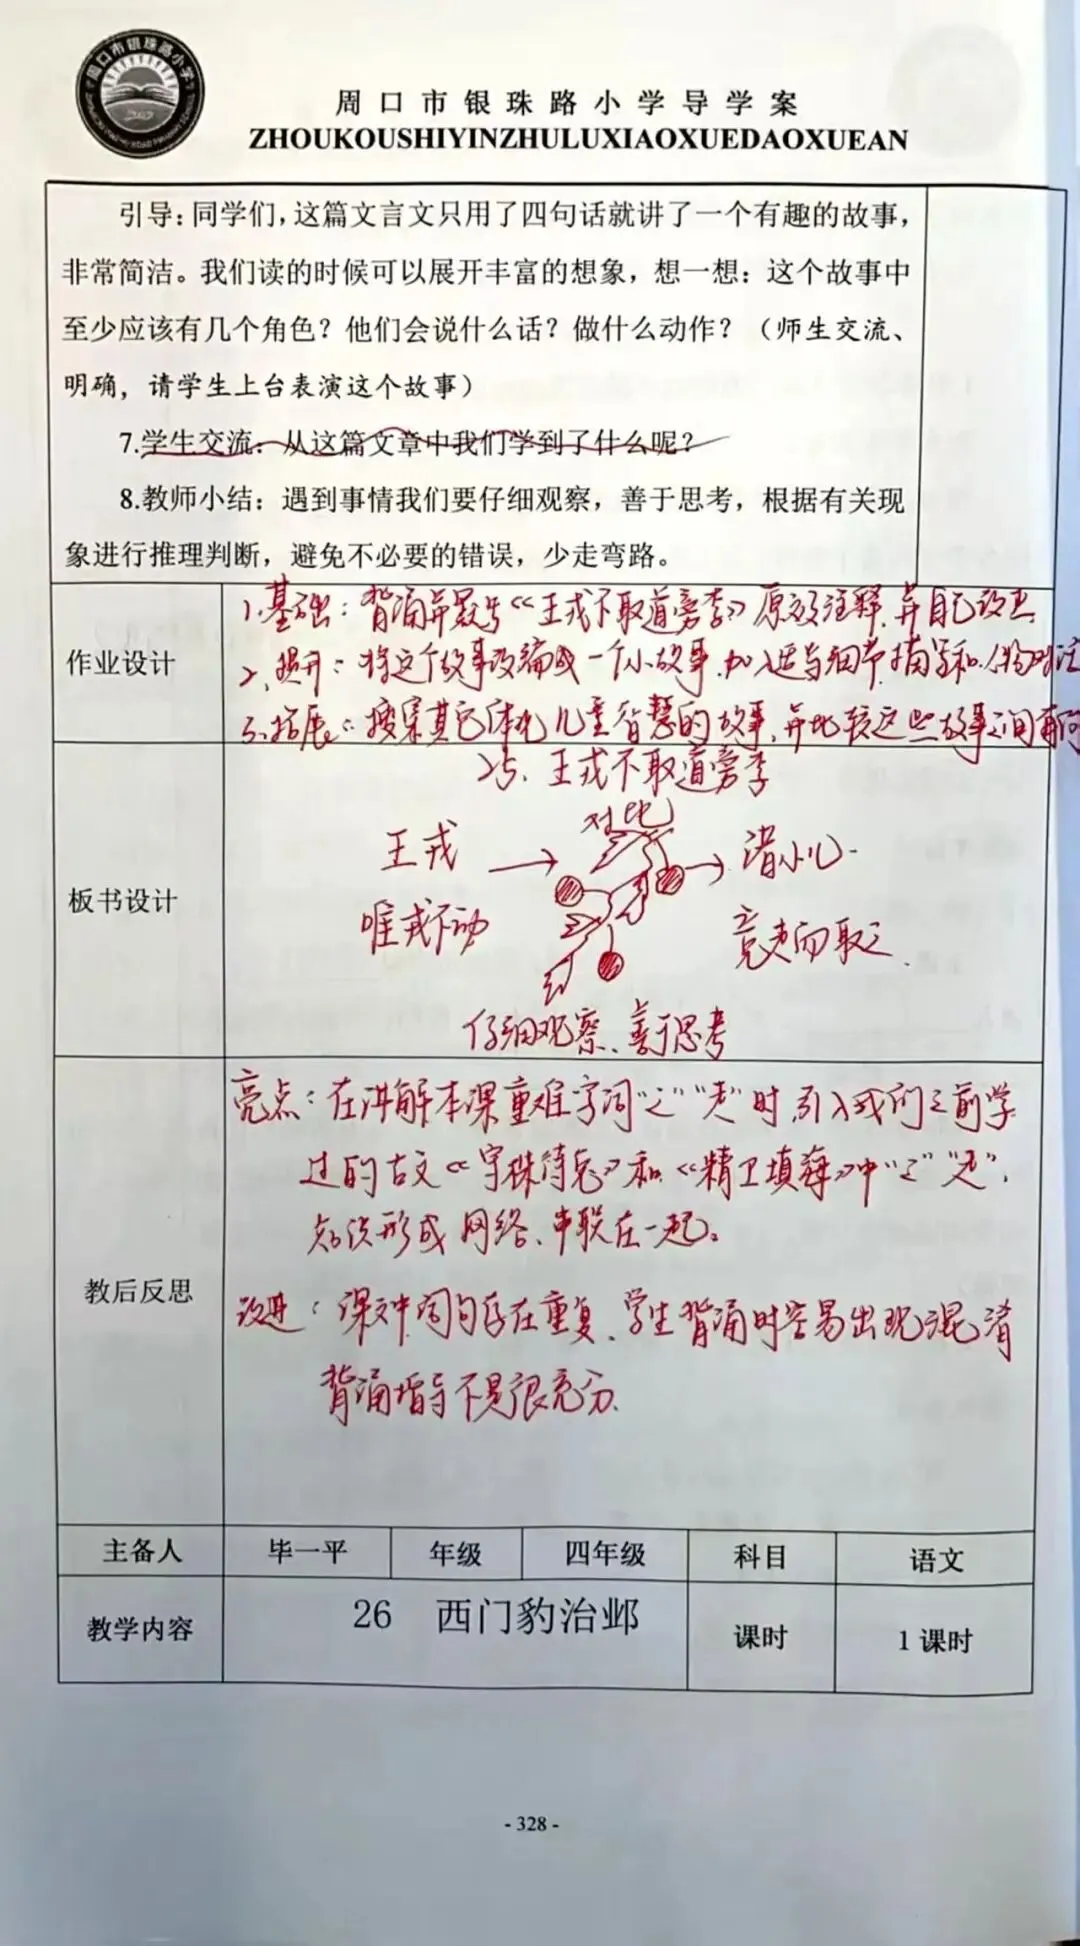 周口市银珠路小学
周口市银珠路小学导学案
ZHOUKOUSHIYINZHULUXIAOXUEDAOXUEAN
引导：同学们，这篇文言文只用了四句话就讲了一个有趣的故事，
非常简洁。我们读的时候可以展开丰富的想象，想一想：这个故事中
至少应该有几个角色？他们会说什么话？做什么动作？（师生交流、
明确，请学生上台表演这个故事）
7.学生交流：从这篇文章中我们学到了什么呢？
8.教师小结：遇到事情我们要仔细观察，善于思考，根据有关现
象进行推理判断，避免不必要的错误，少走弯路。
作业设计
1.基础：背诵并默写《王戎不取道旁李》原文及注释，并自己改
2.提升：将这个故事改编成一个小故事，加入适当细节描写和人物对话
3.拓展：搜索其它体现儿童智慧的故事，并比较这些故事之间有何
板书设计
25、王戎不取道旁李
对比
王戎
诸小儿
唯戎不动
竞走而取之
仔细观察、善于思考
教后反思
亮点：在讲解本课重难字词“之”“走”时，引入我们之前学
过的古文《守株待兔》和《精卫填海》中“之”“走”，
知识形成网络、串联在一起。
改进：课文中词句存在重复，学生背诵时容易出现混淆
背诵指导不是很充分
主备人 毕一平 年级 四年级 科目 语文
教学内容 26 西门豹治邺 课时 1课时
- 328 -